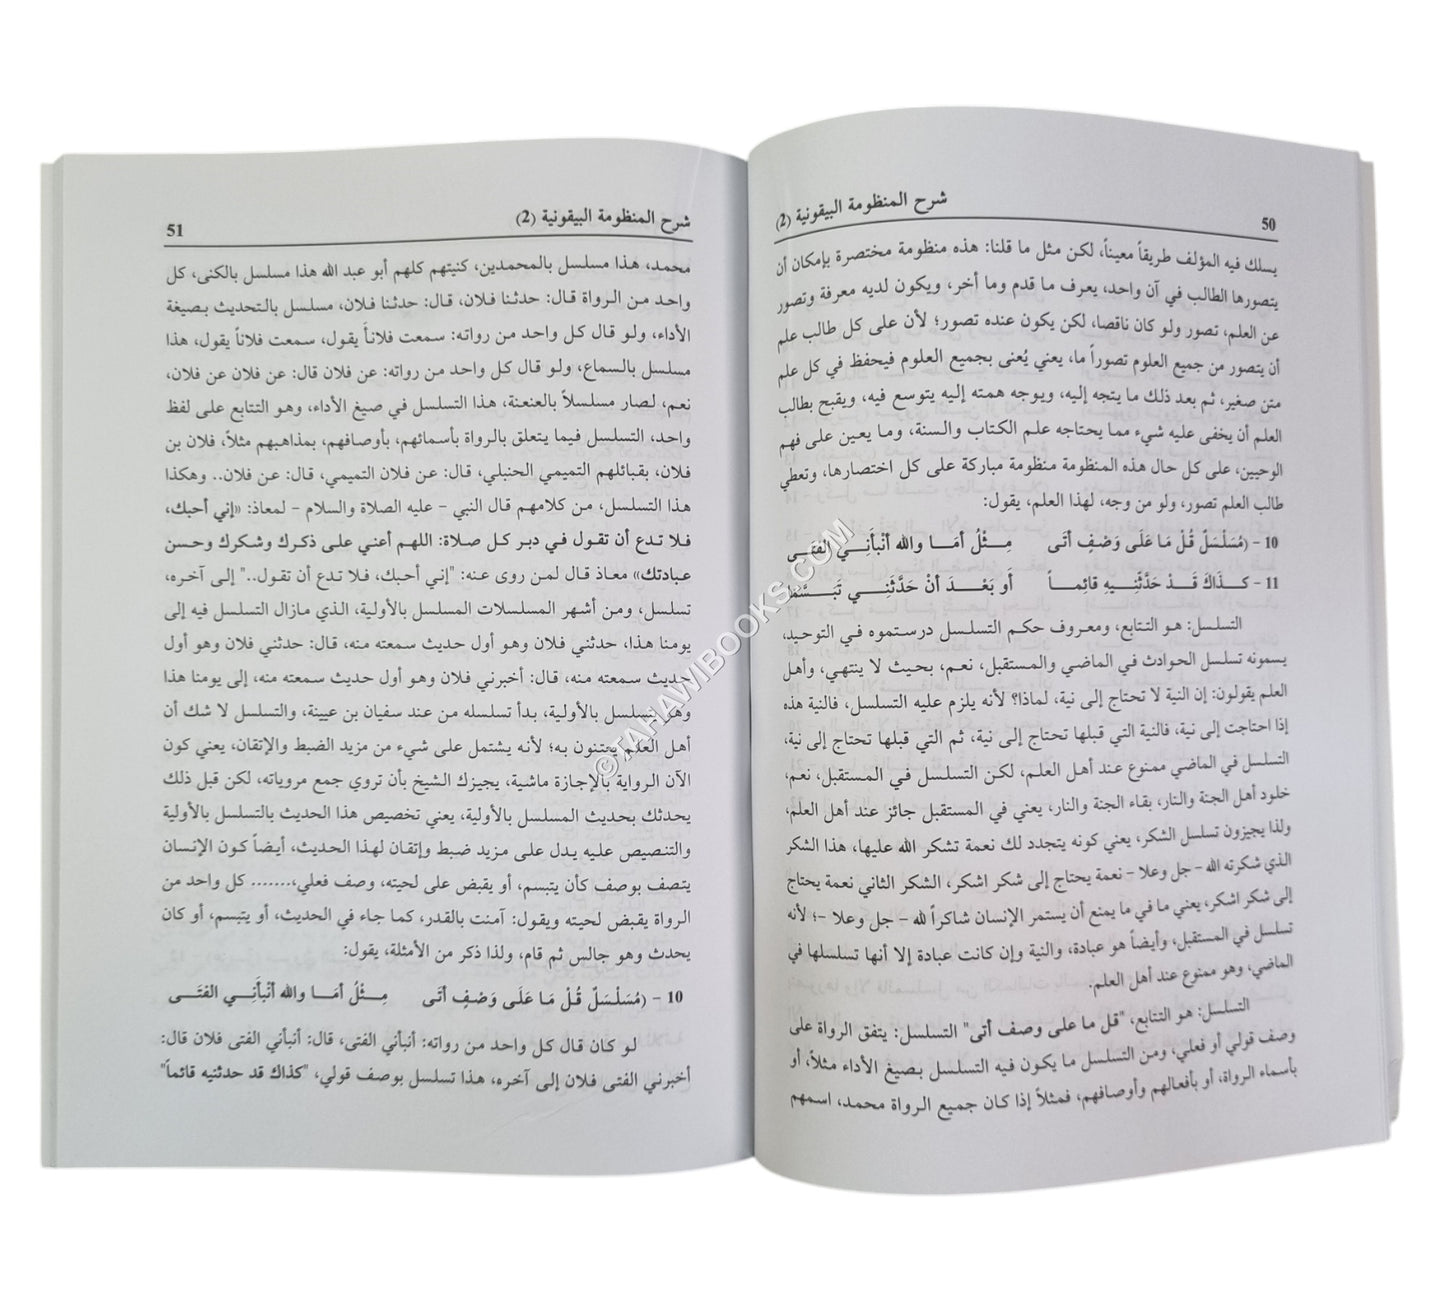 50
شرح المنظومة البيقونية (2)
يسلك فيه المؤلف طريقاً معيناً، لكن مثل ما قلنا: هذه منظومة مختصرة بإمكان أن
يتصورها الطالب في آن واحد، يعرف ما قدم وما أخر، ويكون لديه معرفة وتصور
عن العلم، تصور ولو كان ناقصا، لكن يكون عنده تصور؛ لأن على كل طالب علم
أن يتصور من جميع العلوم تصوراً ما، يعني يُعنى بجميع العلوم فيحفظ في كل علم
متن صغير، ثم بعد ذلك ما يتجه إليه، ويوجه همته إليه يتوسع فيه، ويقبح بطالب
العلم أن يخفى عليه شيء مما يحتاجه علم الكتاب والسنة، وما يعين على فهم
الوحيين، على كل حال هذه المنظومة منظومة مباركة على كل اختصارها، وتعطي
طالب العلم تصور، ولو من وجه، لهذا العلم، يقول:
10 - (مُسَلْسَلٌ قُلْ مَا عَلَى وَصْفٍ أتَى مِـثْلُ أمَـا والله أنْبَأنِـي الفَتَـى
11 - كـذَاكَ قَـدْ حَدَّثَنِـيهِ قائِمـاً أو بَعْـدَ أنْ حَدَّثَنِـي تَبَسَّمَا
التسلسل: هـو التتابع، ومعروف حكم التسلسل درستموه في التوحيد،
يسمونه تسلسل الحوادث في الماضي والمستقبل، نعم، بحيث لا ينتهي، وأهل
العلم يقولون: إن النية لا تحتاج إلى نية، لماذا؟ لأنه يلزم عليه التسلسل، فالنية هذه
إذا احتاجت إلى نية، فالنية التي قبلها تحتاج إلى نية، ثم التي قبلها تحتاج إلى نية،
التسلسل في الماضي ممنوع عند أهل العلم، لكن التسلسل في المستقبل، نعم،
خلود أهل الجنة والنار، بقاء الجنة والنار، يعني في المستقبل جائز عند أهل العلم،
ولذا يجيزون تسلسل الشكر، يعني كونه يتجدد لك نعمة تشكر الله عليها، هذا الشكر
الذي شكرته الله - جل وعلا - نعمة يحتاج إلى شكر اشكر، الشكر الثاني نعمة يحتاج
إلى شكر اشكر، يعني ما في ما يمنع أن يستمر الإنسان شاكراً لله - جل وعلا -؛ لأنه
تسلسل في المستقبل، وأيضاً هو عبادة، والنية وإن كانت عبادة إلا أنها تسلسلها في
الماضي، وهو ممنوع عند أهل العلم.
التسلسل: هو التتابع، "قل ما على وصف أتى" التسلسل: يتفق الرواة على
وصف قولي أو فعلي، ومن التسلسل ما يكون فيه التسلسل بصيغ الأداء مثلاً، أو
بأسماء الرواة، أو بأفعالهم وأوصافهم، فمثلاً إذا كان جميع الرواة محمد، اسمهم
شرح المنظومة البيقونية (2)
51
محمد، هذا مسلسل بالمحمدين، كنيتهم كلهم أبو عبد الله هذا مسلسل بالكنى، كل
واحد من الرواة قال: حدثنا فلان، قال: حدثنا فلان، مسلسل بالتحديث بصيغة
الأداء، ولو قال كل واحد من رواته: سمعت فلاناً يقول، سمعت فلاناً يقول، هذا
مسلسل بالسماع، ولو قال كل واحد من رواته: عن فلان قال: عن فلان عن فلان،
نعم، لصار مسلسلاً بالعنعنة، هذا التسلسل في صيغ الأداء، وهو التتابع على لفظ
واحد، التسلسل فيما يتعلق بالرواة بأسمائهم، بأوصافهم، بمذاهبهم مثلاً، فلان بن
فلان، بقبائلهم التميمي الحنبلي، قال: عن فلان التميمي، قال: عن فلان.. وهكذا
هذا التسلسل، من كلامهم قال النبي - عليه الصلاة والسلام - لمعاذ: «إني أحبك،
فلا تدع أن تقول في دبر كل صلاة: اللهم أعني على ذكرك وشكرك وحسن
عبادتك» معاذ قال لمن روى عنه: "إني أحبك، فلا تدع أن تقول.." إلى آخره،
تسلسل، ومن أشهر المسلسلات المسلسل بالأولية، الذي مازال التسلسل فيه إلى
يومنا هذا، حدثني فلان وهو أول حديث سمعته منه، قال: حدثني فلان وهو أول
حديث سمعته منه، قال: أخبرني فلان وهو أول حديث سمعته منه، إلى يومنا هذا
وهذا تسلسل بالأولية، بدأ تسلسله من عند سفيان بن عيينة، والتسلسل لا شك أن
أهل العلم يعتنون به؛ لأنه يشتمل على شيء من مزيد الضبط والإتقان، يعني كون
الآن الرواية بالإجازة ماشية، يجيزك الشيخ بأن تروي جمع مروياته، لكن قبل ذلك
يحدثك بحديث المسلسل بالأولية، يعني تخصيص هذا الحديث بالتسلسل بالأولية
والتنصيص عليه يدل على مزيد ضبط وإتقان لهذا الحديث، أيضاً كون الإنسان
يتصف بوصف كأن يتبسم، أو يقبض على لحيته، وصف فعلي،....... كل واحد من
الرواة يقبض لحيته ويقول: آمنت بالقدر، كما جاء في الحديث، أو يتبسم، أو كان
يحدث وهو جالس ثم قام، ولذا ذكر من الأمثلة، يقول:
10 - (مُسَلْسَلٌ قُلْ مَا عَلَى وَصْفٍ أتَى مِـثْلُ أمَـا والله أنْبَأنِـي الفَتَـى
لو كان قال كل واحد من رواته: أنبأني الفتى، قال: أنبأني الفتى فلان قال:
أخبرني الفتى فلان إلى آخره، هذا تسلسل بوصف قولي، "كذاك قد حدثنيه قائماً"
©TAHAWIBOOKS.COM